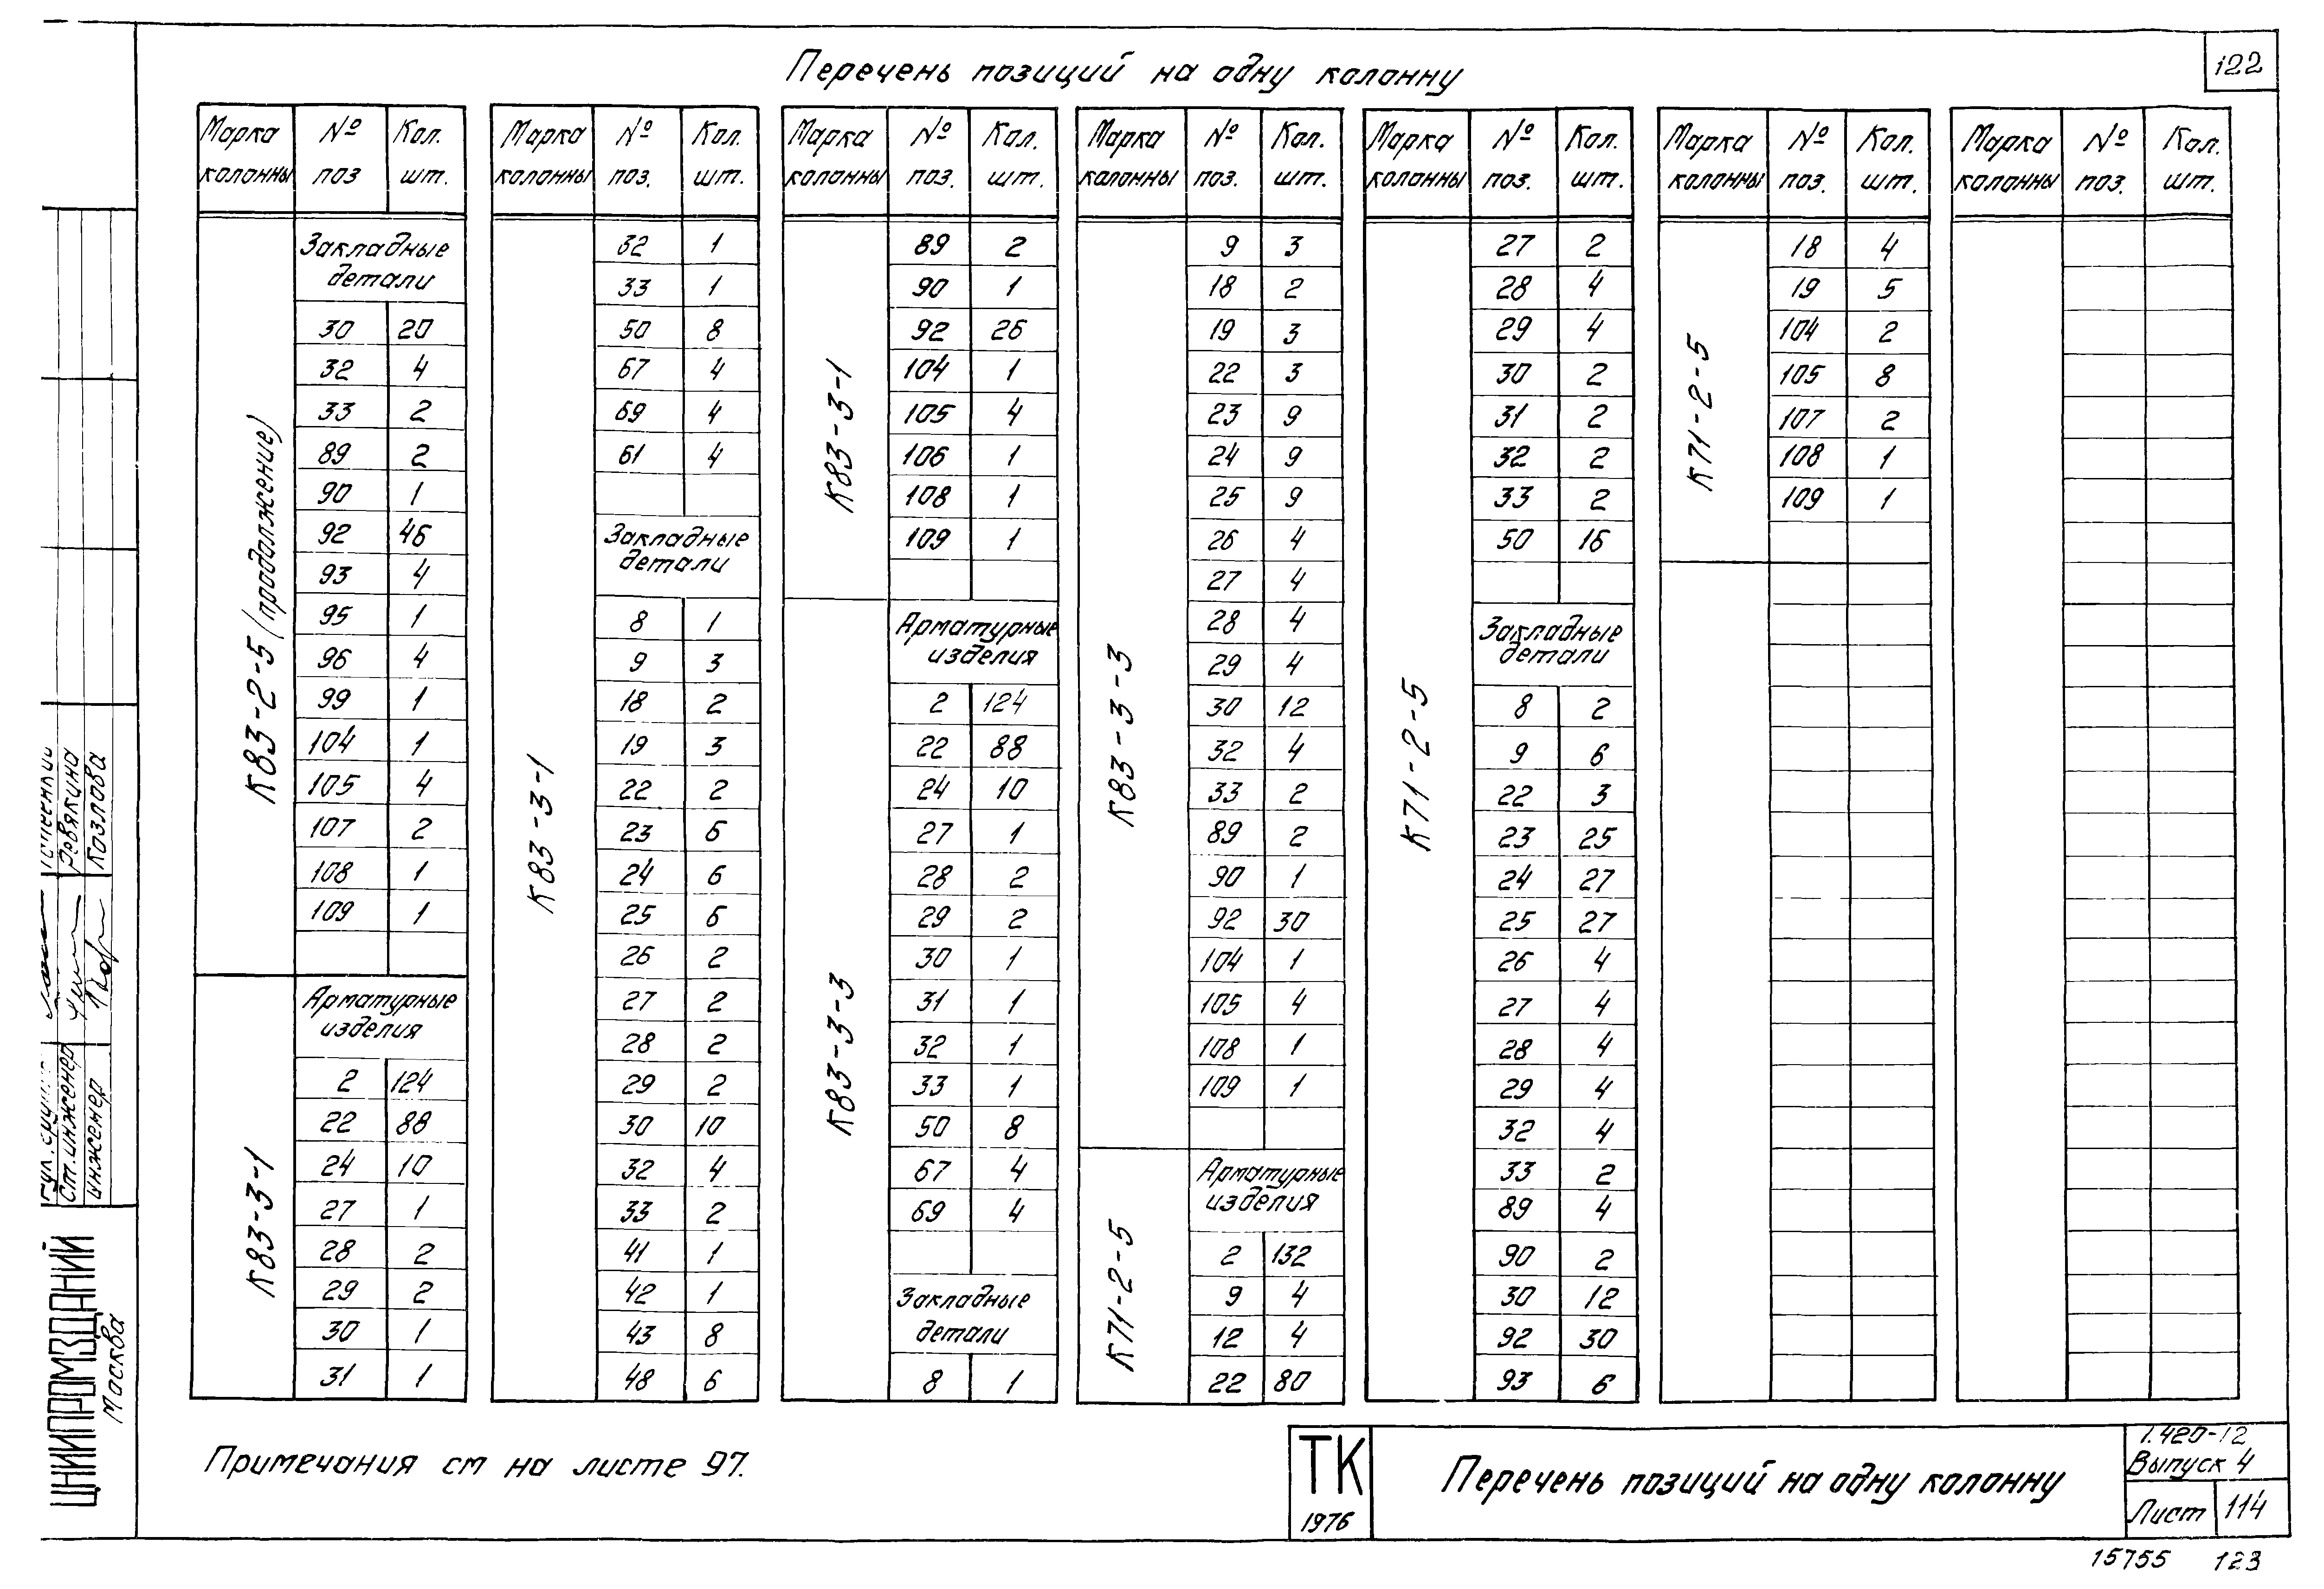 122
Перечень позиций на одну колонну
Марка колонны № поз Кол. шт.
К83-2-5 (продолжение)
Закладные
детали
30 20
32 4
33 2
89 2
90 1
92 46
93 4
95 1
96 4
99 1
104 1
105 4
107 2
108 1
109 1
К83-3-1
Арматурные
изделия
2 124
22 88
24 10
27 1
28 2
29 2
30 1
31 1
Марка колонны № поз. Кол. шт.
К83-3-1
32 1
33 1
50 8
67 4
69 4
61 4
Закладные
детали
8 1
9 3
18 2
19 3
22 2
23 6
24 6
25 6
26 2
27 2
28 2
29 2
30 10
32 4
33 2
41 1
42 1
43 8
48 6
Марка колонны № поз. Кол. шт.
К83-3-1
89 2
90 1
92 26
104 1
105 4
106 1
108 1
109 1
К83-3-3
Арматурные
изделия
2 124
22 88
24 10
27 1
28 2
29 2
30 1
31 1
32 1
33 1
50 8
67 4
69 4
Закладные
детали
8 1
Марка колонны № поз. Кол. шт.
К83-3-3
9 3
18 2
19 3
22 3
23 9
24 9
25 9
26 4
27 4
28 4
29 4
30 12
32 4
33 2
89 2
90 1
92 30
104 1
105 4
108 1
109 1
К71-2-5
Арматурные
изделия
2 132
9 4
12 4
22 80
Марка колонны № поз. Кол. шт.
К71-2-5
27 2
28 4
29 4
30 2
31 2
32 2
33 2
50 16
Закладные
детали
8 2
9 6
22 3
23 25
24 27
25 27
26 4
27 4
28 4
29 4
32 4
33 2
89 4
90 2
30 12
92 30
93 6
Марка колонны № поз. Кол. шт.
К71-2-5
18 4
19 5
104 2
105 8
107 2
108 1
109 1
Марка колонны № поз. Кол. шт.
Ревякина
Козлова
Ст. инженер
инженер
ЦНИИПРОМЗДАНИЙ
Москва
Примечания см на листе 97.
ТК
1976
Перечень позиций на одну колонну
1.420-12
Выпуск 4
Лист 114
15755 123